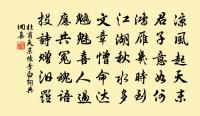 涼風起天末
君子意如何
鴻雁幾時到
江湖秋水多
文章憎命達
魑魅喜人過
應共冤魂語
投詩贈汨羅
杜甫天末懷李白詞典
網集